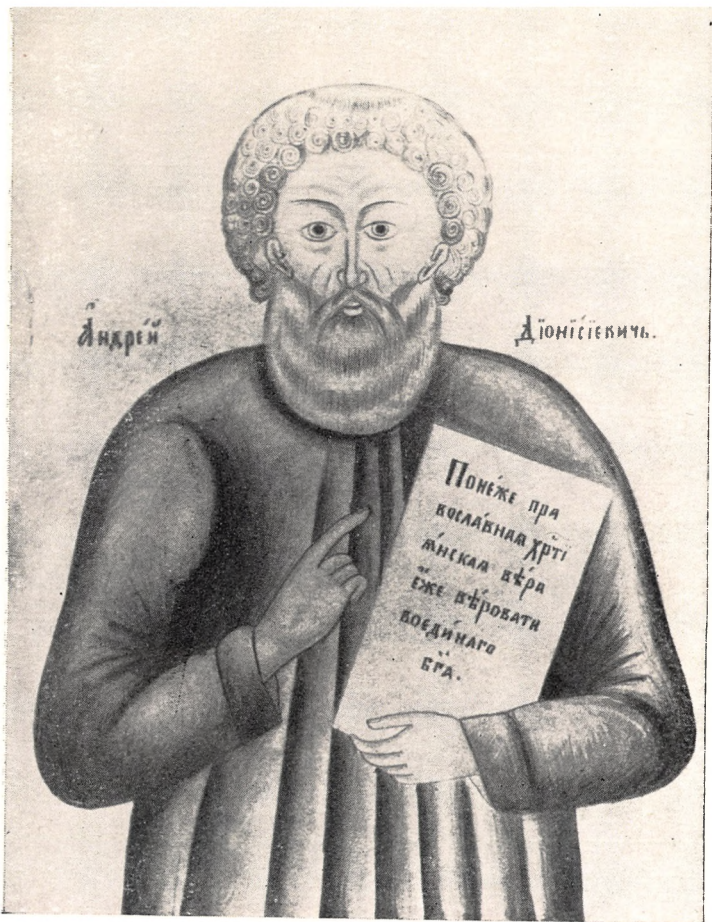 Андре́й
Дїонїсїевичь.
Поне́же пра
восла́вная хрⷭ҇тї
а́нская вѣ́ра
є҆́же вѣ́ровати
воеди́наго
бг҃а.